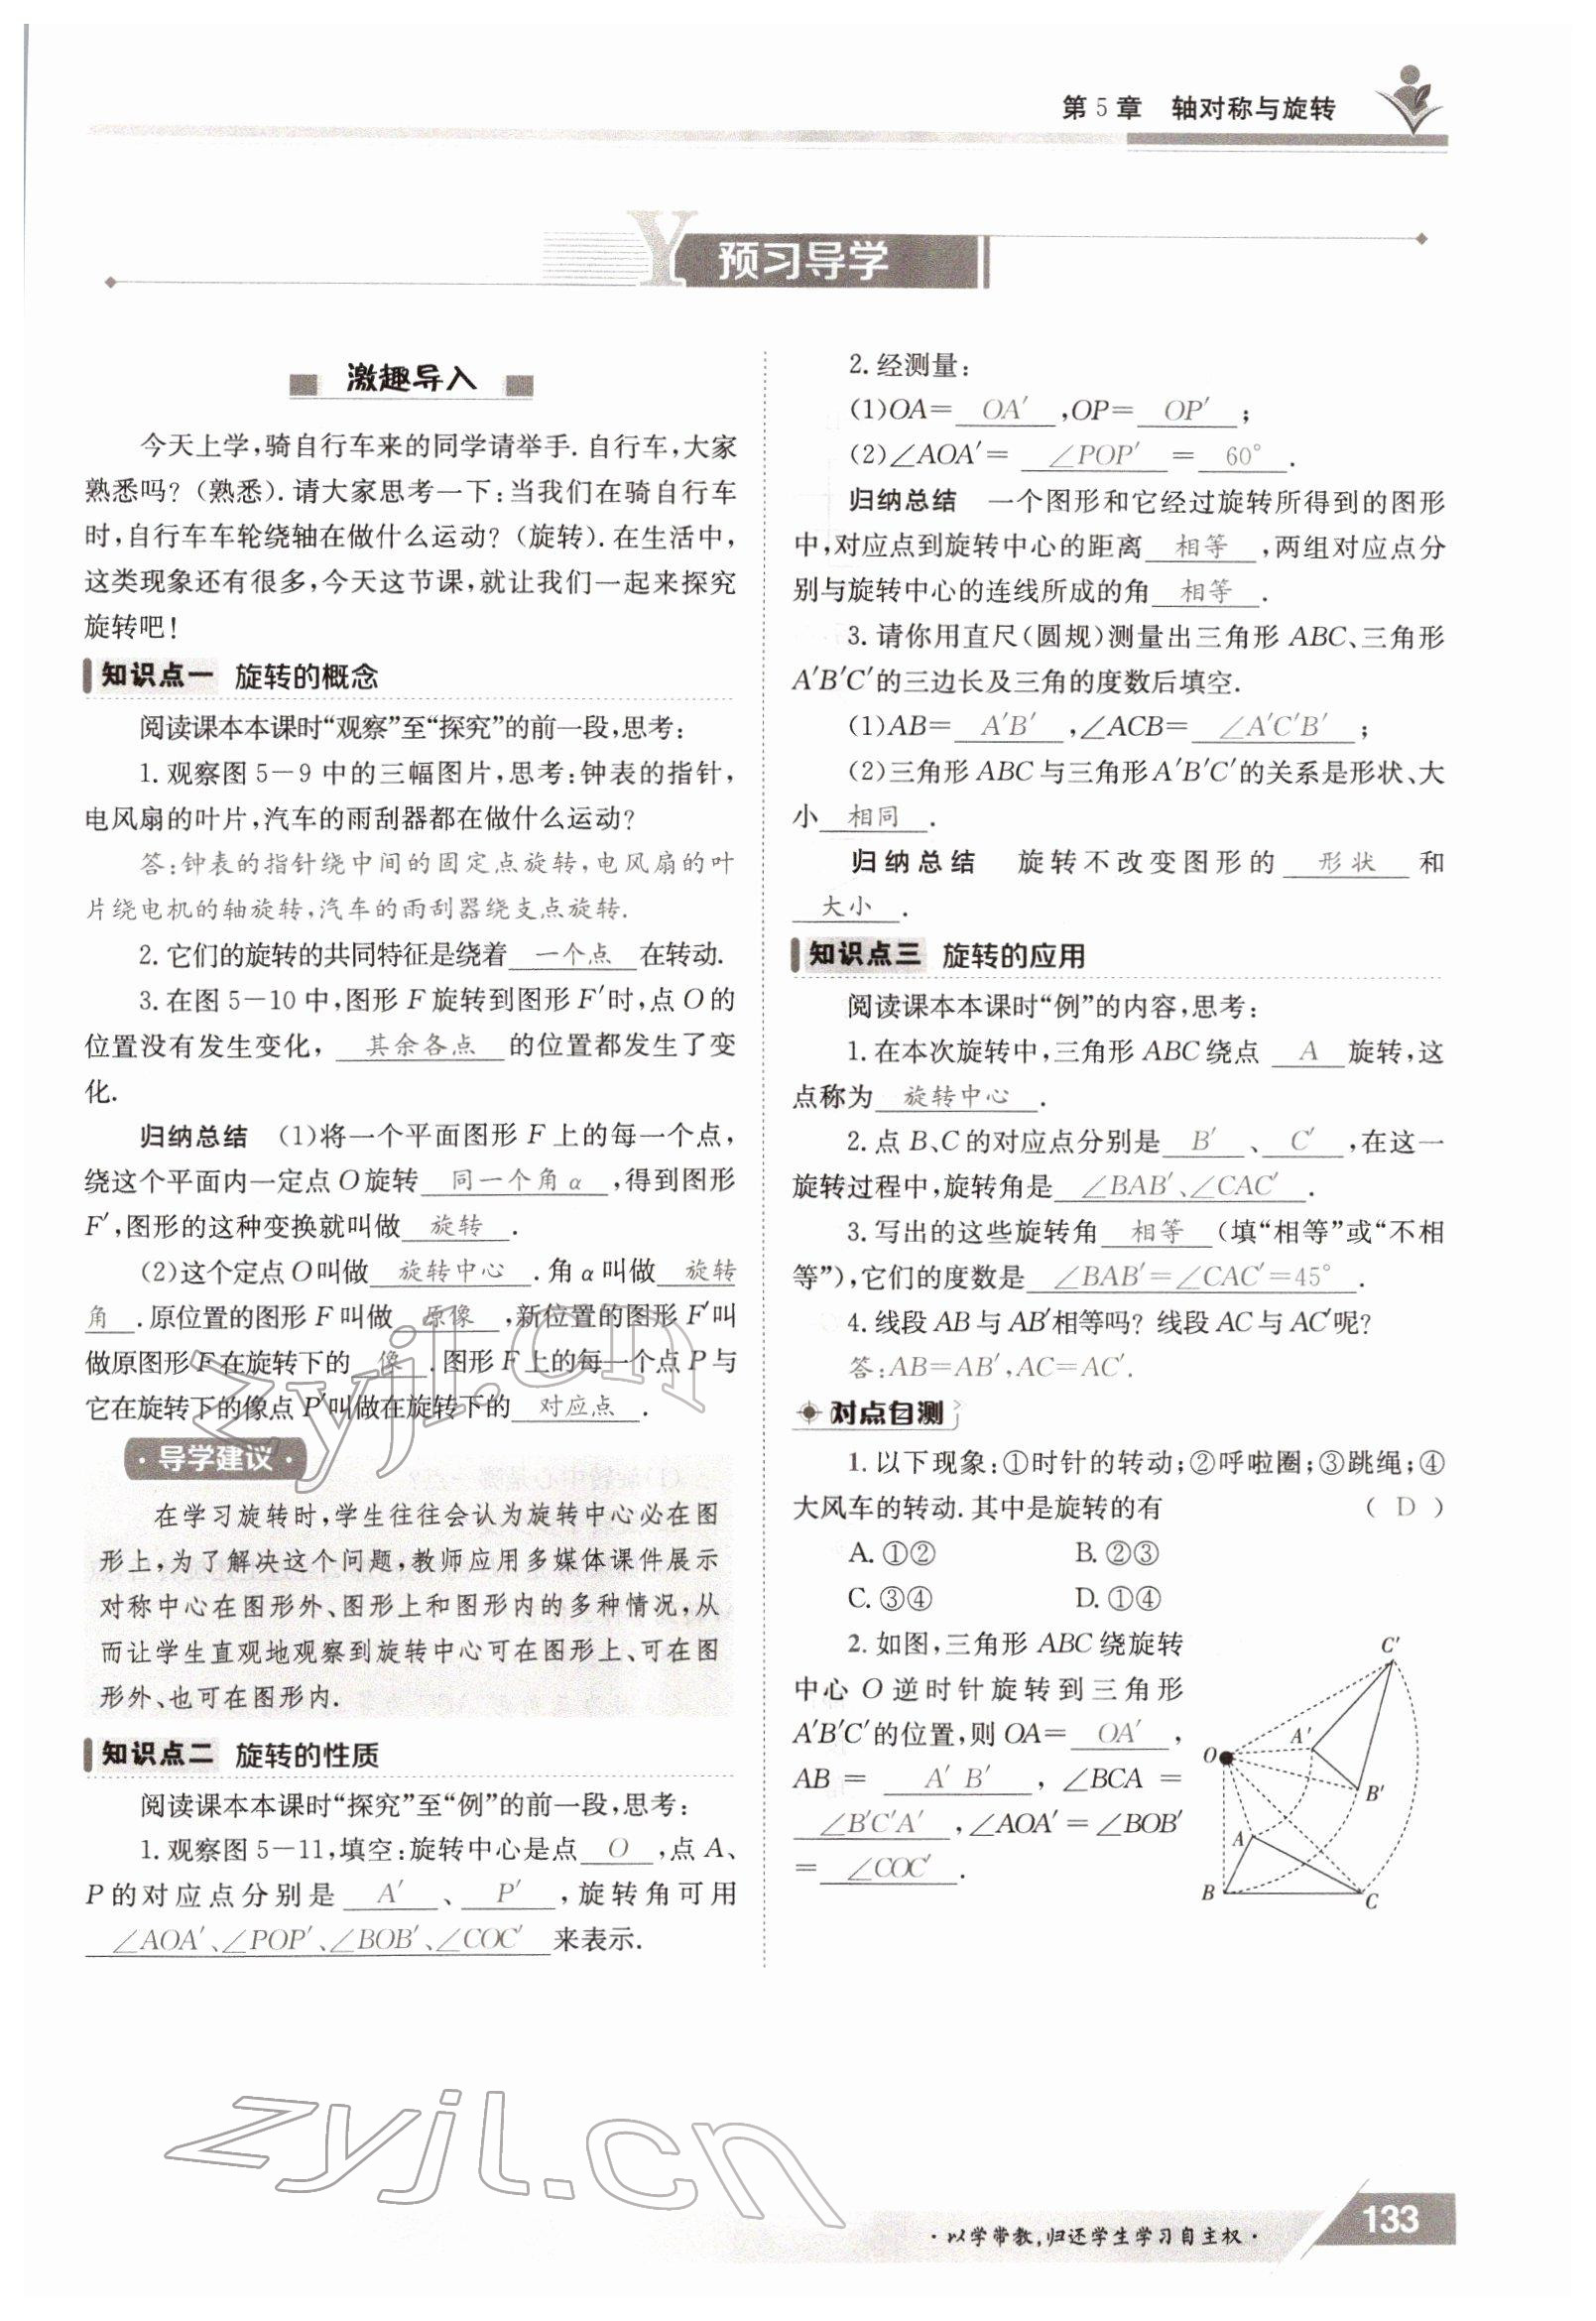 第5章 轴对称与旋转
Y 预习导学
激趣导入
今天上学,骑自行车来的同学请举手.自行车,大家
熟悉吗?(熟悉).请大家思考一下:当我们在骑自行车
时,自行车车轮绕轴在做什么运动?(旋转).在生活中,
这类现象还有很多,今天这节课,就让我们一起来探究
旋转吧!
知识点一 旋转的概念
阅读课本本课时“观察”至“探究”的前一段,思考:
1.观察图5-9中的三幅图片,思考:钟表的指针,
电风扇的叶片,汽车的雨刮器都在做什么运动?
答:钟表的指针绕中间的固定点旋转,电风扇的叶
片绕电机的轴旋转,汽车的雨刮器绕支点旋转.
2.它们的旋转的共同特征是绕着 一个点 在转动.
3.在图5-10中,图形F旋转到图形F′时,点O的
位置没有发生变化, 其余各点 的位置都发生了变
化.
归纳总结 (1)将一个平面图形F上的每一个点,
绕这个平面内一定点O旋转 同一个角α ,得到图形
F′,图形的这种变换就叫做 旋转 .
(2)这个定点O叫做 旋转中心 .角α叫做 旋转
角 .原位置的图形F叫做 原像 ,新位置的图形F′叫
做原图形F在旋转下的 像 .图形F上的每一个点P与
它在旋转下的像点P′叫做在旋转下的 对应点 .
·导学建议·
在学习旋转时,学生往往会认为旋转中心必在图
形上,为了解决这个问题,教师应用多媒体课件展示
对称中心在图形外、图形上和图形内的多种情况,从
而让学生直观地观察到旋转中心可在图形上、可在图
形外、也可在图形内.
知识点二 旋转的性质
阅读课本本课时“探究”至“例”的前一段,思考:
1.观察图5-11,填空:旋转中心是点 O ,点A、
P的对应点分别是 A′ 、 P′ ,旋转角可用
∠AOA′、∠POP′、∠BOB′、∠COC′ 来表示.
2.经测量:
(1)OA= OA′ ,OP= OP′ ;
(2)∠AOA′= ∠POP′ = 60° .
归纳总结 一个图形和它经过旋转所得到的图形
中,对应点到旋转中心的距离 相等 ,两组对应点分
别与旋转中心的连线所成的角 相等 .
3.请你用直尺(圆规)测量出三角形ABC、三角形
A′B′C′的三边长及三角的度数后填空.
(1)AB= A′B′ ,∠ACB= ∠A′C′B′ ;
(2)三角形ABC与三角形A′B′C′的关系是形状、大
小 相同 .
归纳总结 旋转不改变图形的 形状 和
大小 .
知识点三 旋转的应用
阅读课本本课时“例”的内容,思考:
1.在本次旋转中,三角形ABC绕点 A 旋转,这
点称为 旋转中心 .
2.点B、C的对应点分别是 B′ 、 C′ ,在这一
旋转过程中,旋转角是 ∠BAB′、∠CAC′ .
3.写出的这些旋转角 相等 (填“相等”或“不相
等”),它们的度数是 ∠BAB′=∠CAC′=45° .
4.线段AB与AB′相等吗?线段AC与AC′呢?
答:AB=AB′,AC=AC′.
对点自测
1.以下现象:①时针的转动;②呼啦圈;③跳绳;④
大风车的转动.其中是旋转的有 ( D )
A.①② B.②③
C.③④ D.①④
2.如图,三角形ABC绕旋转
中心O逆时针旋转到三角形
A′B′C′的位置,则OA= OA′ ,
AB= A′B′ ,∠BCA=
∠B′C′A′ ,∠AOA′=∠BOB′
= ∠COC′ .
C′
A′
O
B′
A
B
C
zyjl.cn
zyjl.cn
·以学带教,归还学生学习自主权·
133